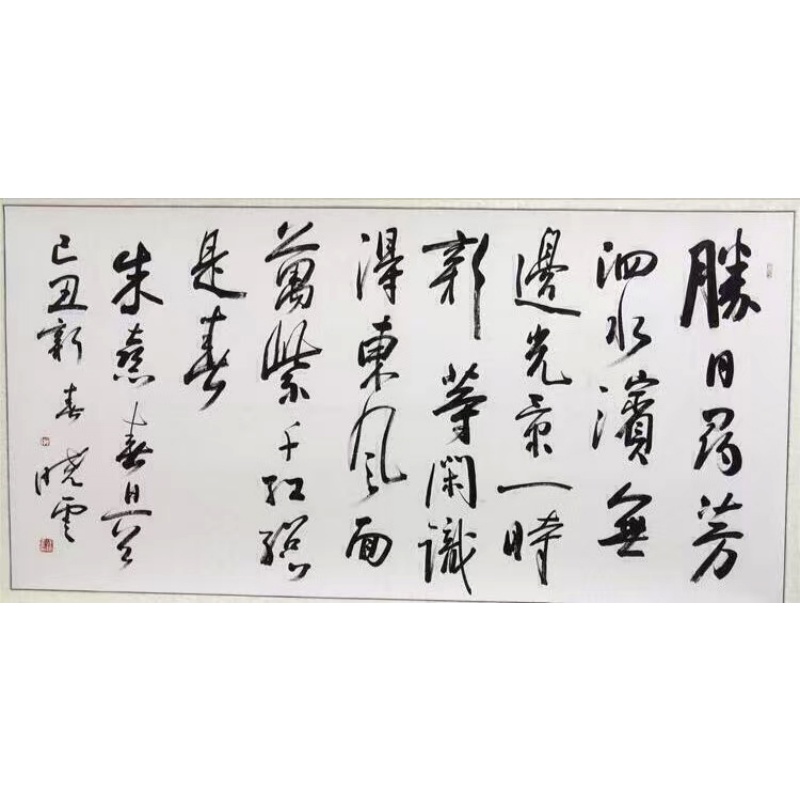 勝日尋芳
泗水濱無
邊光景一時
新等閑識
得東風面
萬紫千紅總
是春
朱熹春日
己丑新春曉雲